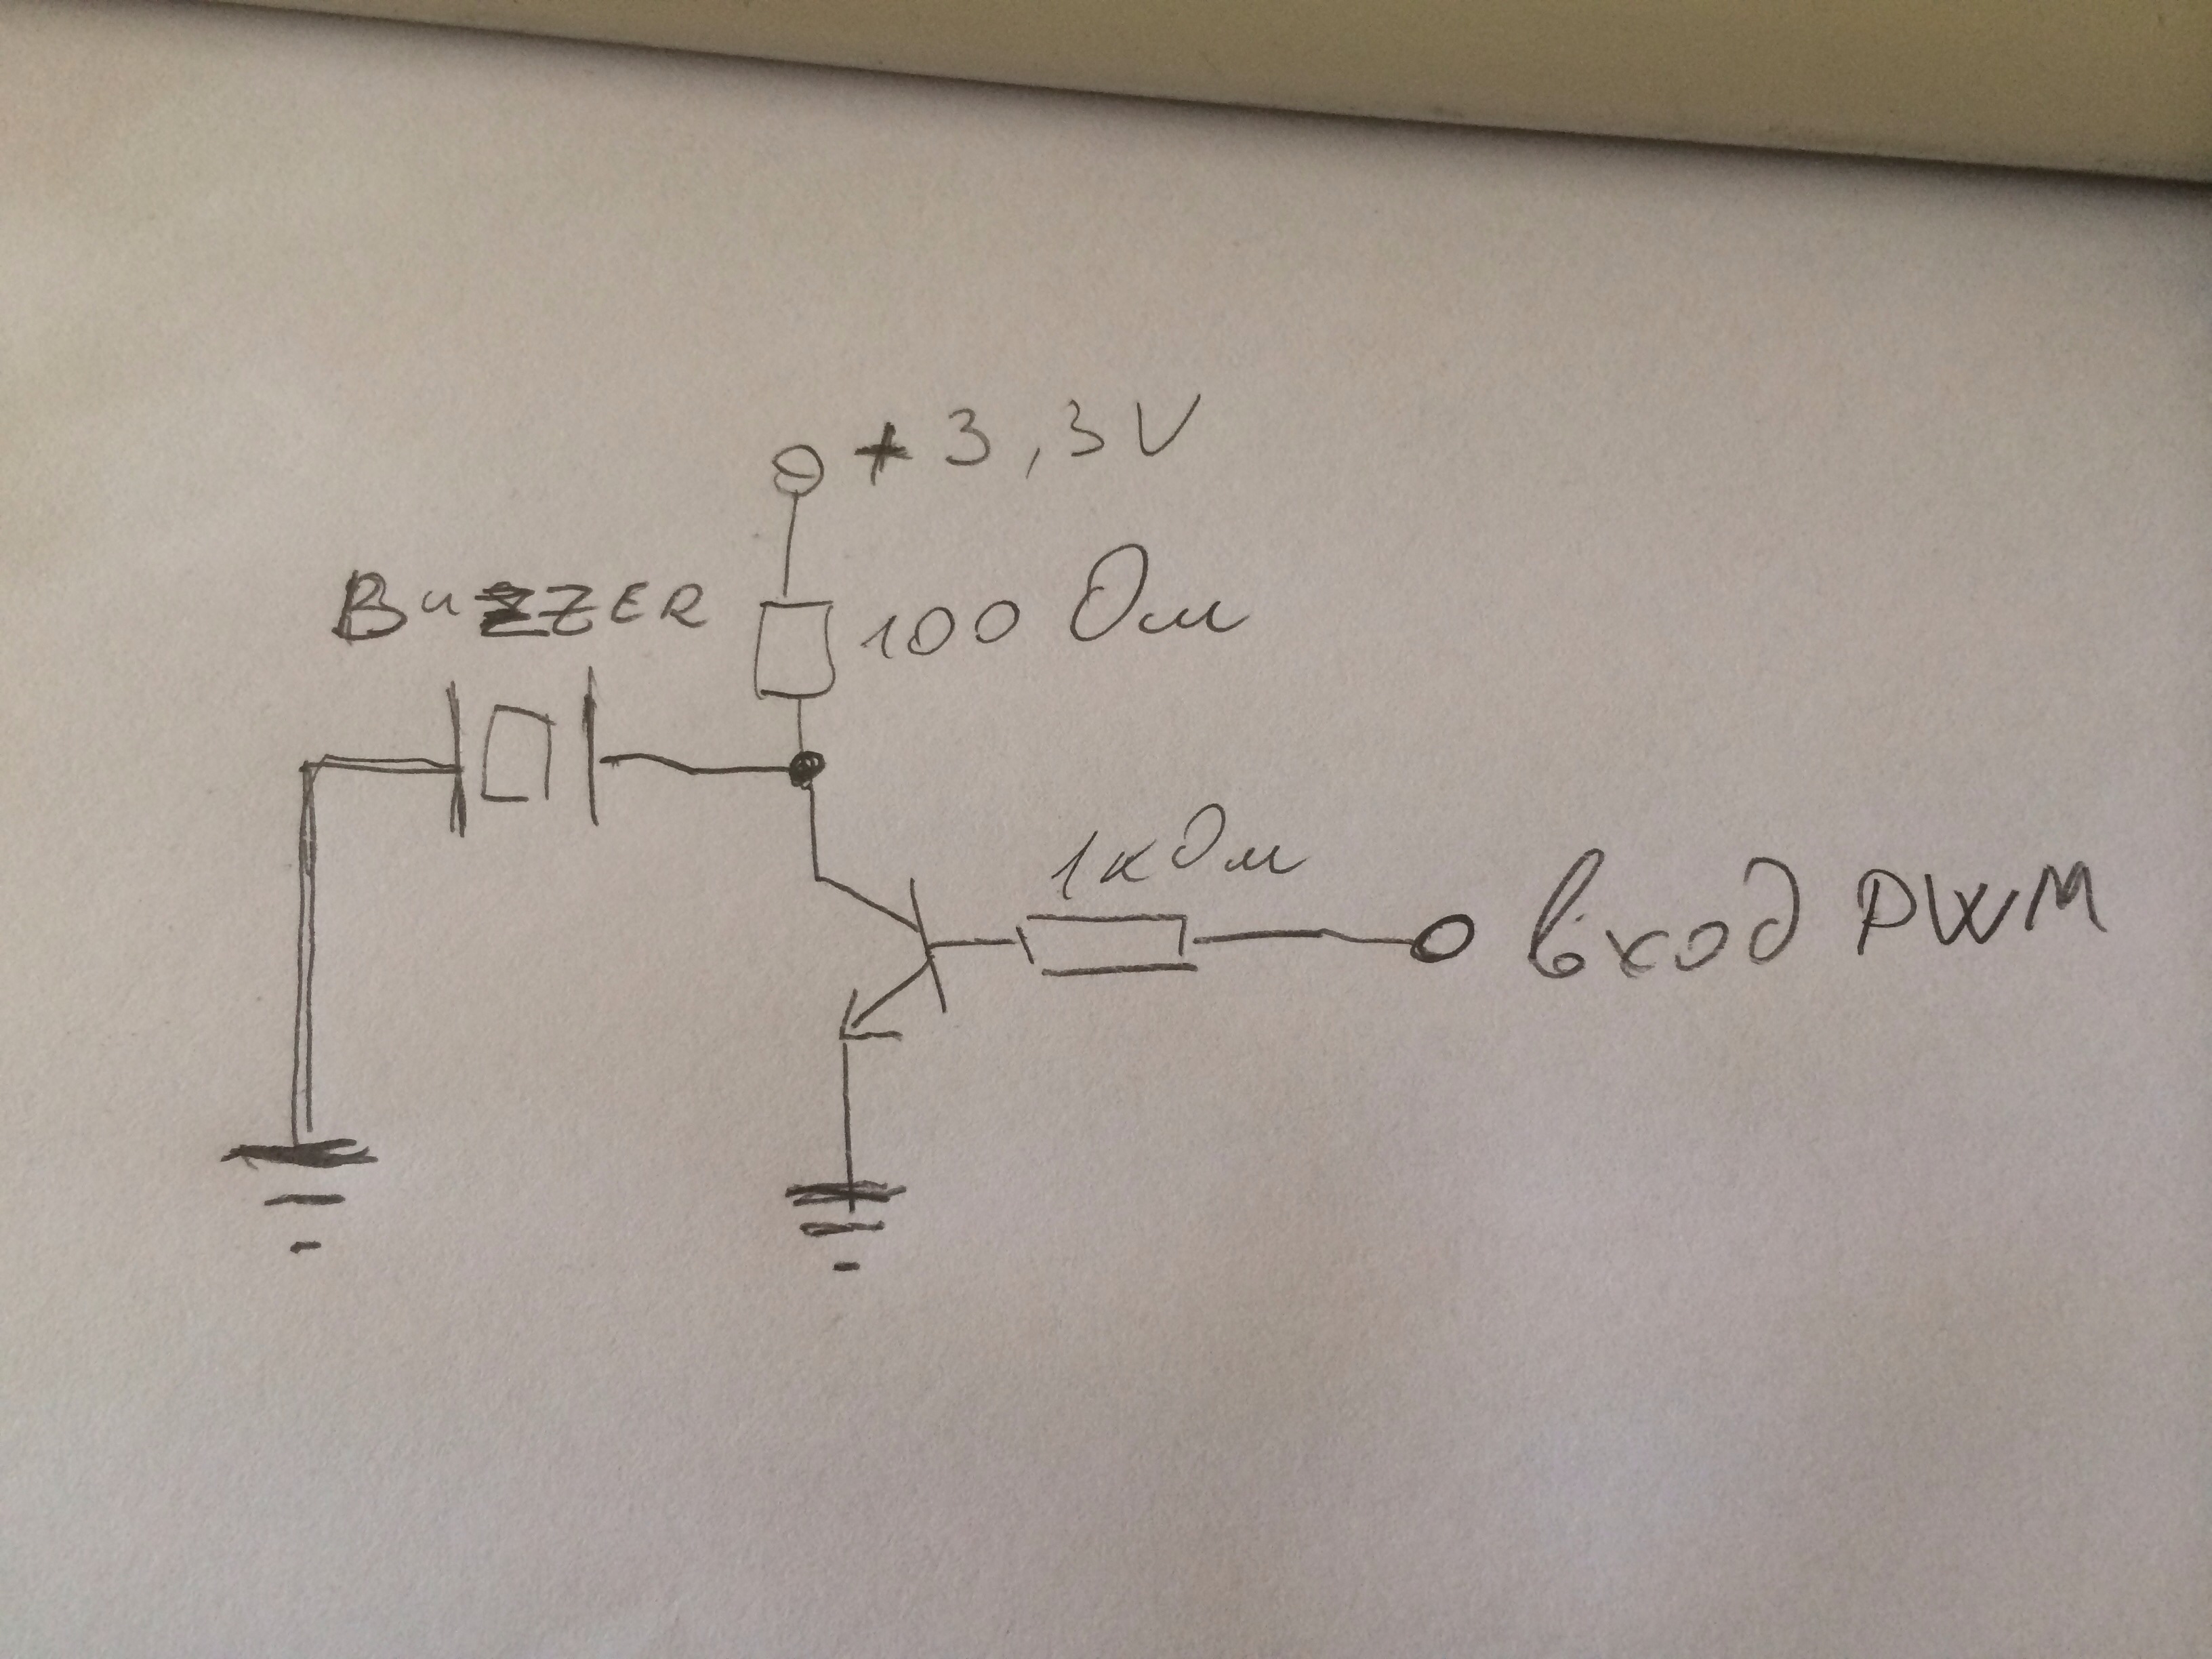 +3,3V
BuZZER
100 Ом
1кОм
вход PWM